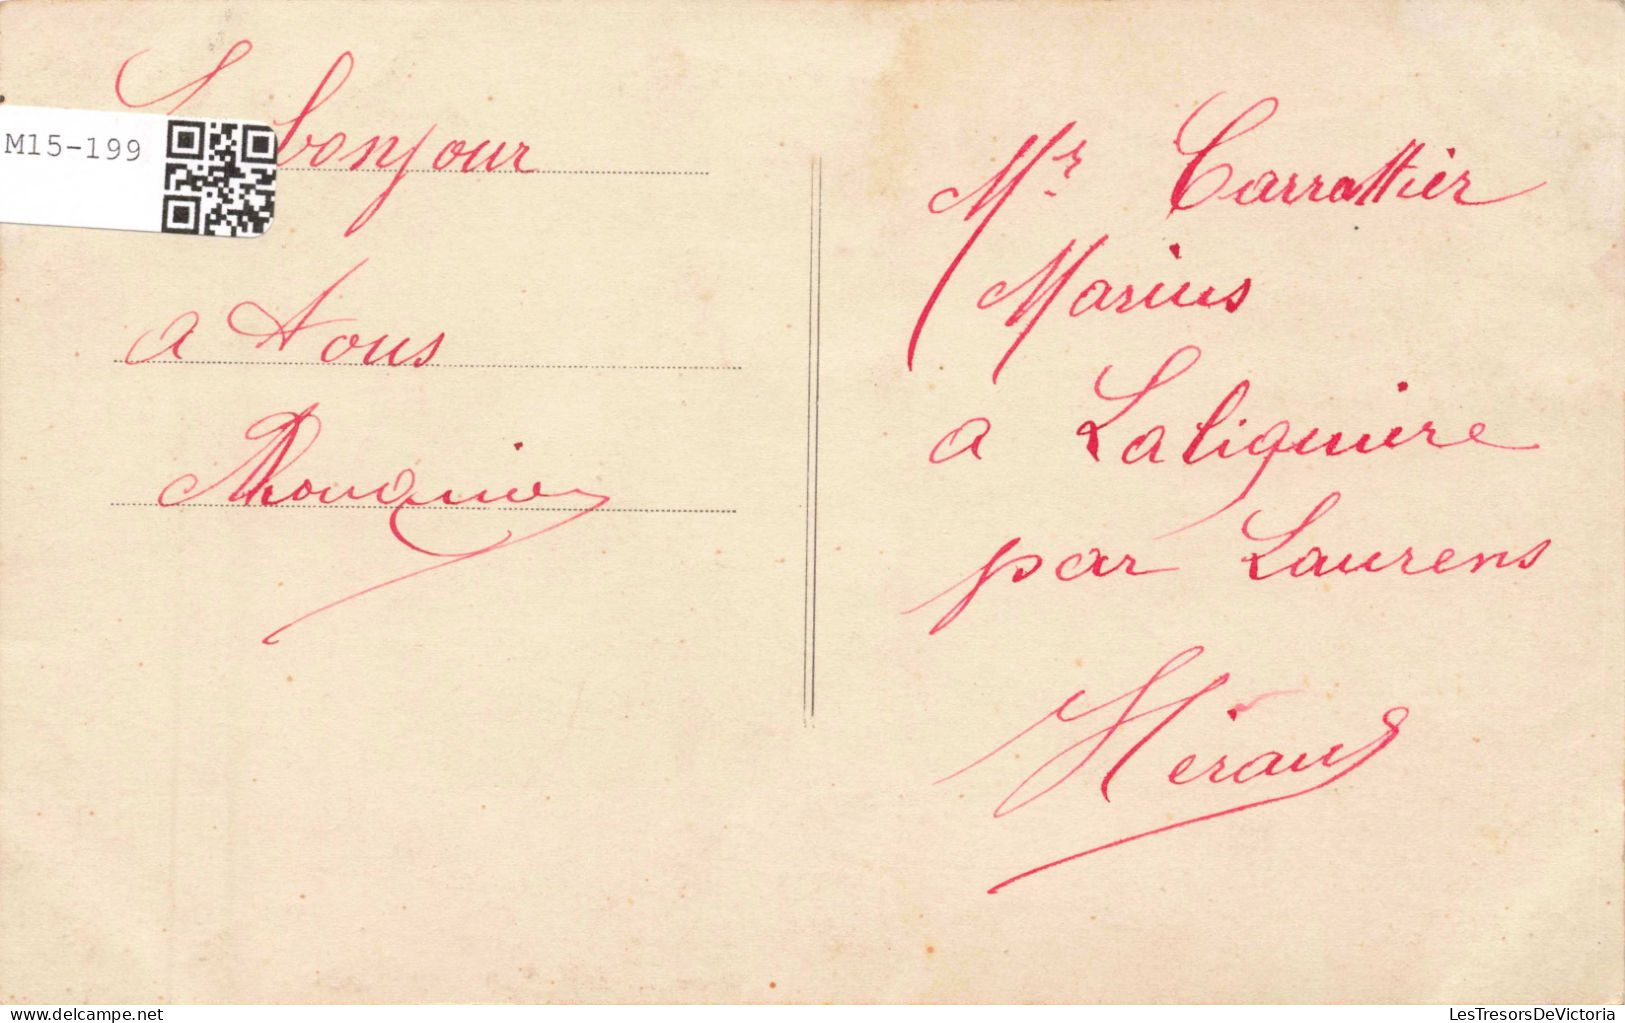 M15-199
bonjour
a tous
Mr Carrattier
Marius
a Laliquiere
par Laurens
Hérault
LesTresorsDeVictoria